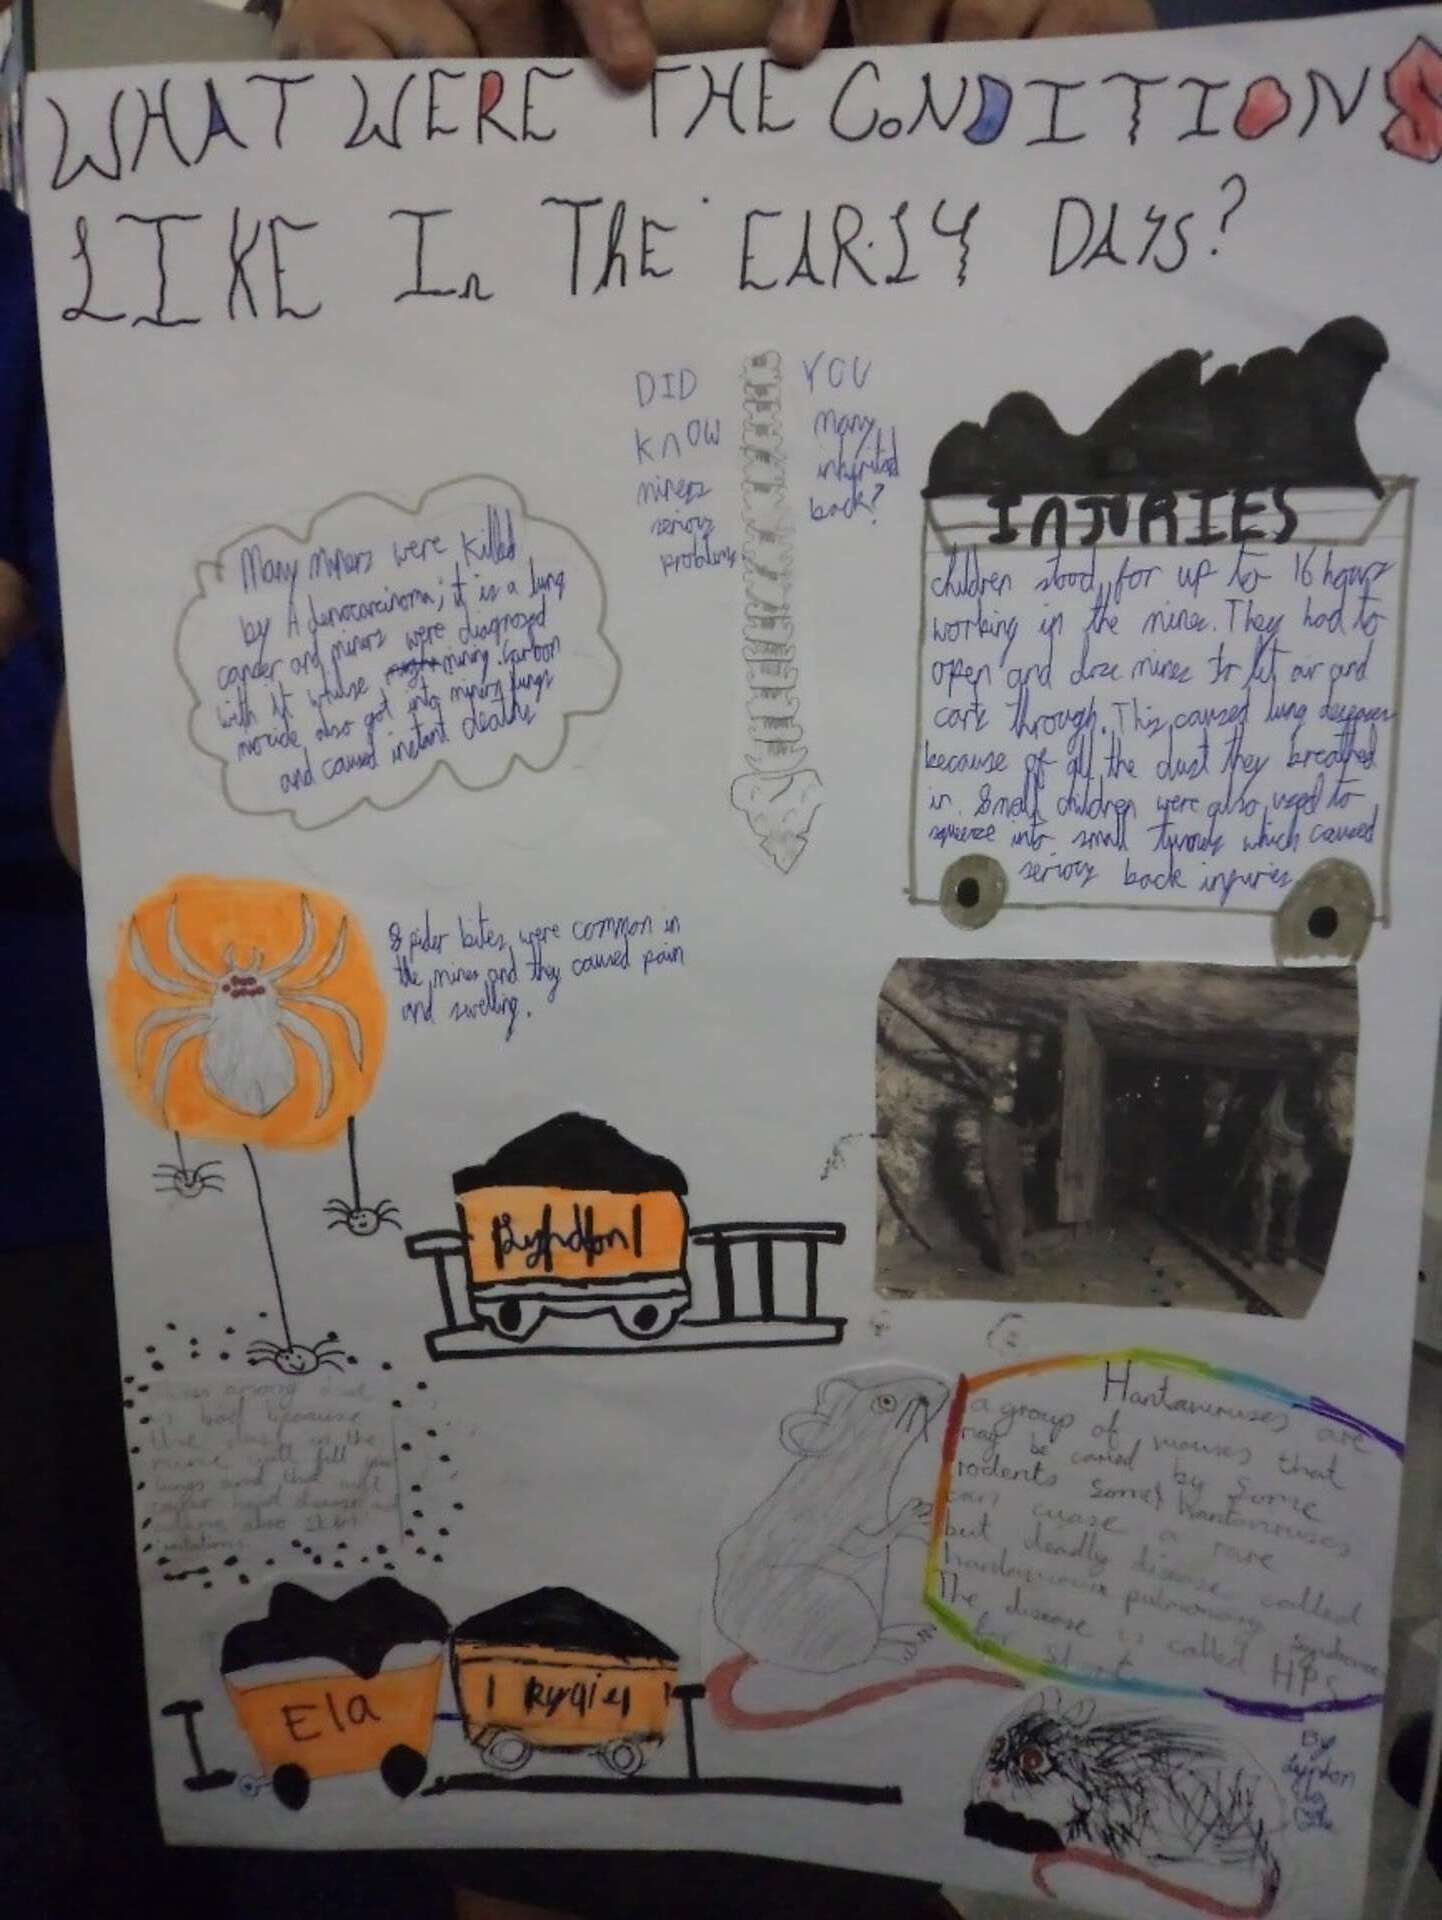 WHAT WERE THE CONDITIONS
LIKE In The EARLY DAYS?
DID YOU
KNOW Many
miners inhyrited
serioys back?
problems
INJURIES
children stood for up to 16 hours
working in the mines. They had to
open and close mines to let air and
cark through. This caused lung
because of all the dust they breathed
in. Small children were also used to
squeeze into small which caused
serioys back injuries
Many Miners were killed
by Adenocarcinoma; it is a lung
cancer and miners were diagnosed
with it whilse mining. Carbon
also got into miners lungs
and caused instant deaths
Spider bites were common in
the mines and they caused pain
and swelling.
is bad because
the dust in the
will fill your
lungs and
also skin
Hantaviruses are
a group of that
may be caried by some
rodents some hantaviruses
can cuase a rare
but deadly disease called
pulmonary
The disease is called HPS
for short
Ela
By